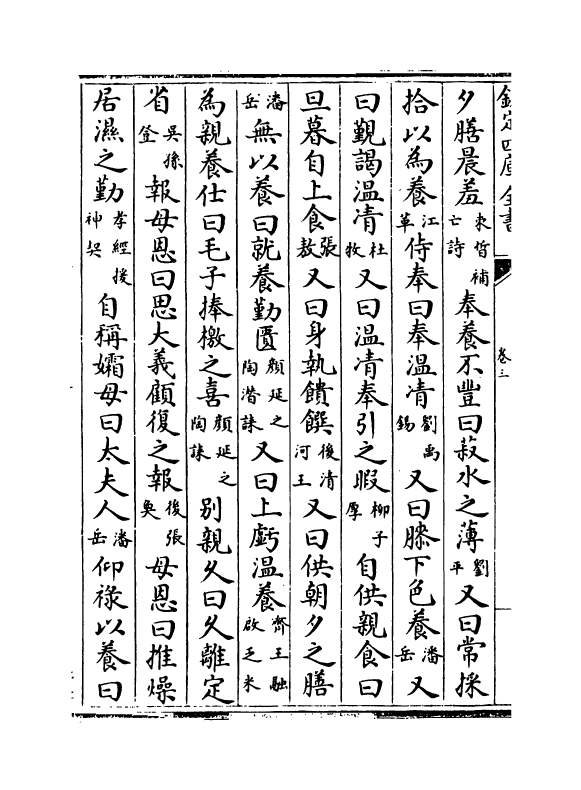 欽定四庫全書
卷三
夕膳晨羞束晳補亡詩奉養不豐曰菽水之薄劉平又曰常採
拾以為養江革侍奉曰奉溫凊劉禹錫又曰膝下色養潘岳又
曰覲謁溫凊杜牧又曰溫凊奉引之暇柳子厚自供親食曰
旦暮自上食張敖又曰身執饋饌後清河王又曰供朝夕之膳
潘岳無以養曰就養勤匱顔延之陶潛誄又曰上虧溫養齊王融啟乏米
為親養仕曰毛子捧檄之喜顔延之陶誄別親久曰久離定
省吳孫登報母恩曰思大義顧復之報後張奐母恩曰推燥
居濕之勤孝經援神契自稱孀母曰太夫人潘岳仰祿以養曰